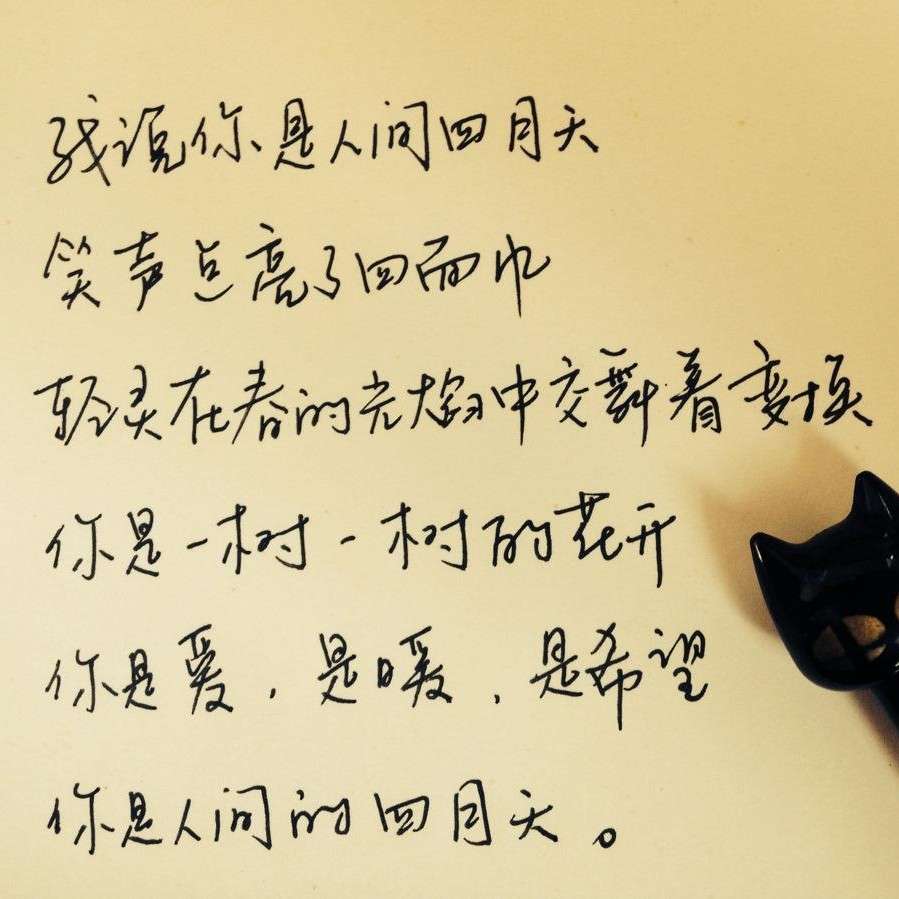 我说你是人间四月天
笑声点亮了四面风
轻灵在春的光焰中交舞着变换
你是一树一树的花开
你是爱，是暖，是希望
你是人间的四月天。